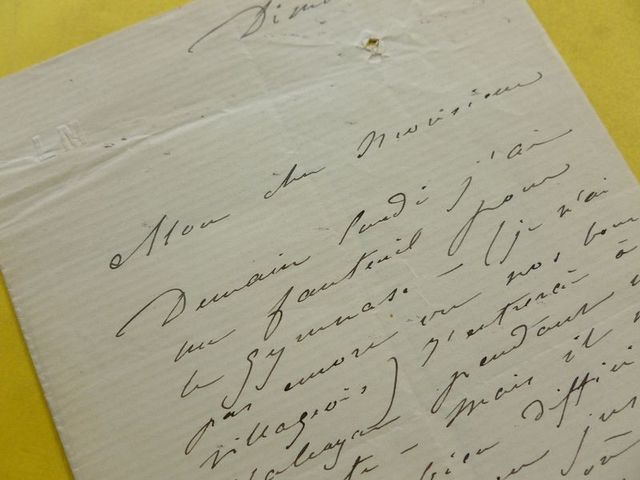 Dim
LN
Mon cher Monsieur
Demain lundi j'ai
un fauteuil pour
le Gymnase - (je n'ai
pas encore vu nos bons
villageois) j'entrerai à
pendant
mais il
bien diffici